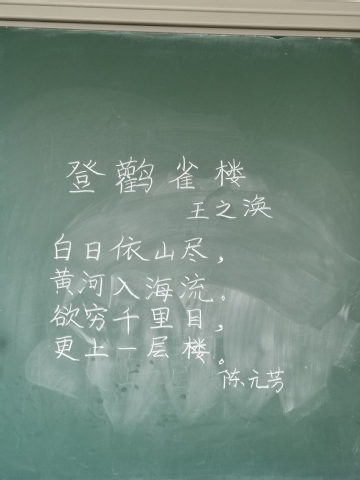 登鹳雀楼
王之涣
白日依山尽，
黄河入海流。
欲穷千里目，
更上一层楼。
陈元芳